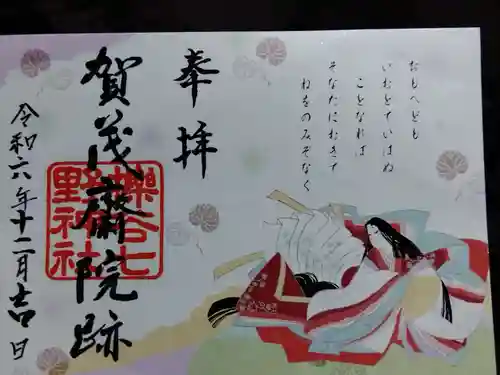 おもへども
いむとていはぬ
ことなれば
そなたにむきて
ねをのみぞなく
奉拝
賀茂斎院跡
櫟谷七
野神社
令和六年十二月吉日